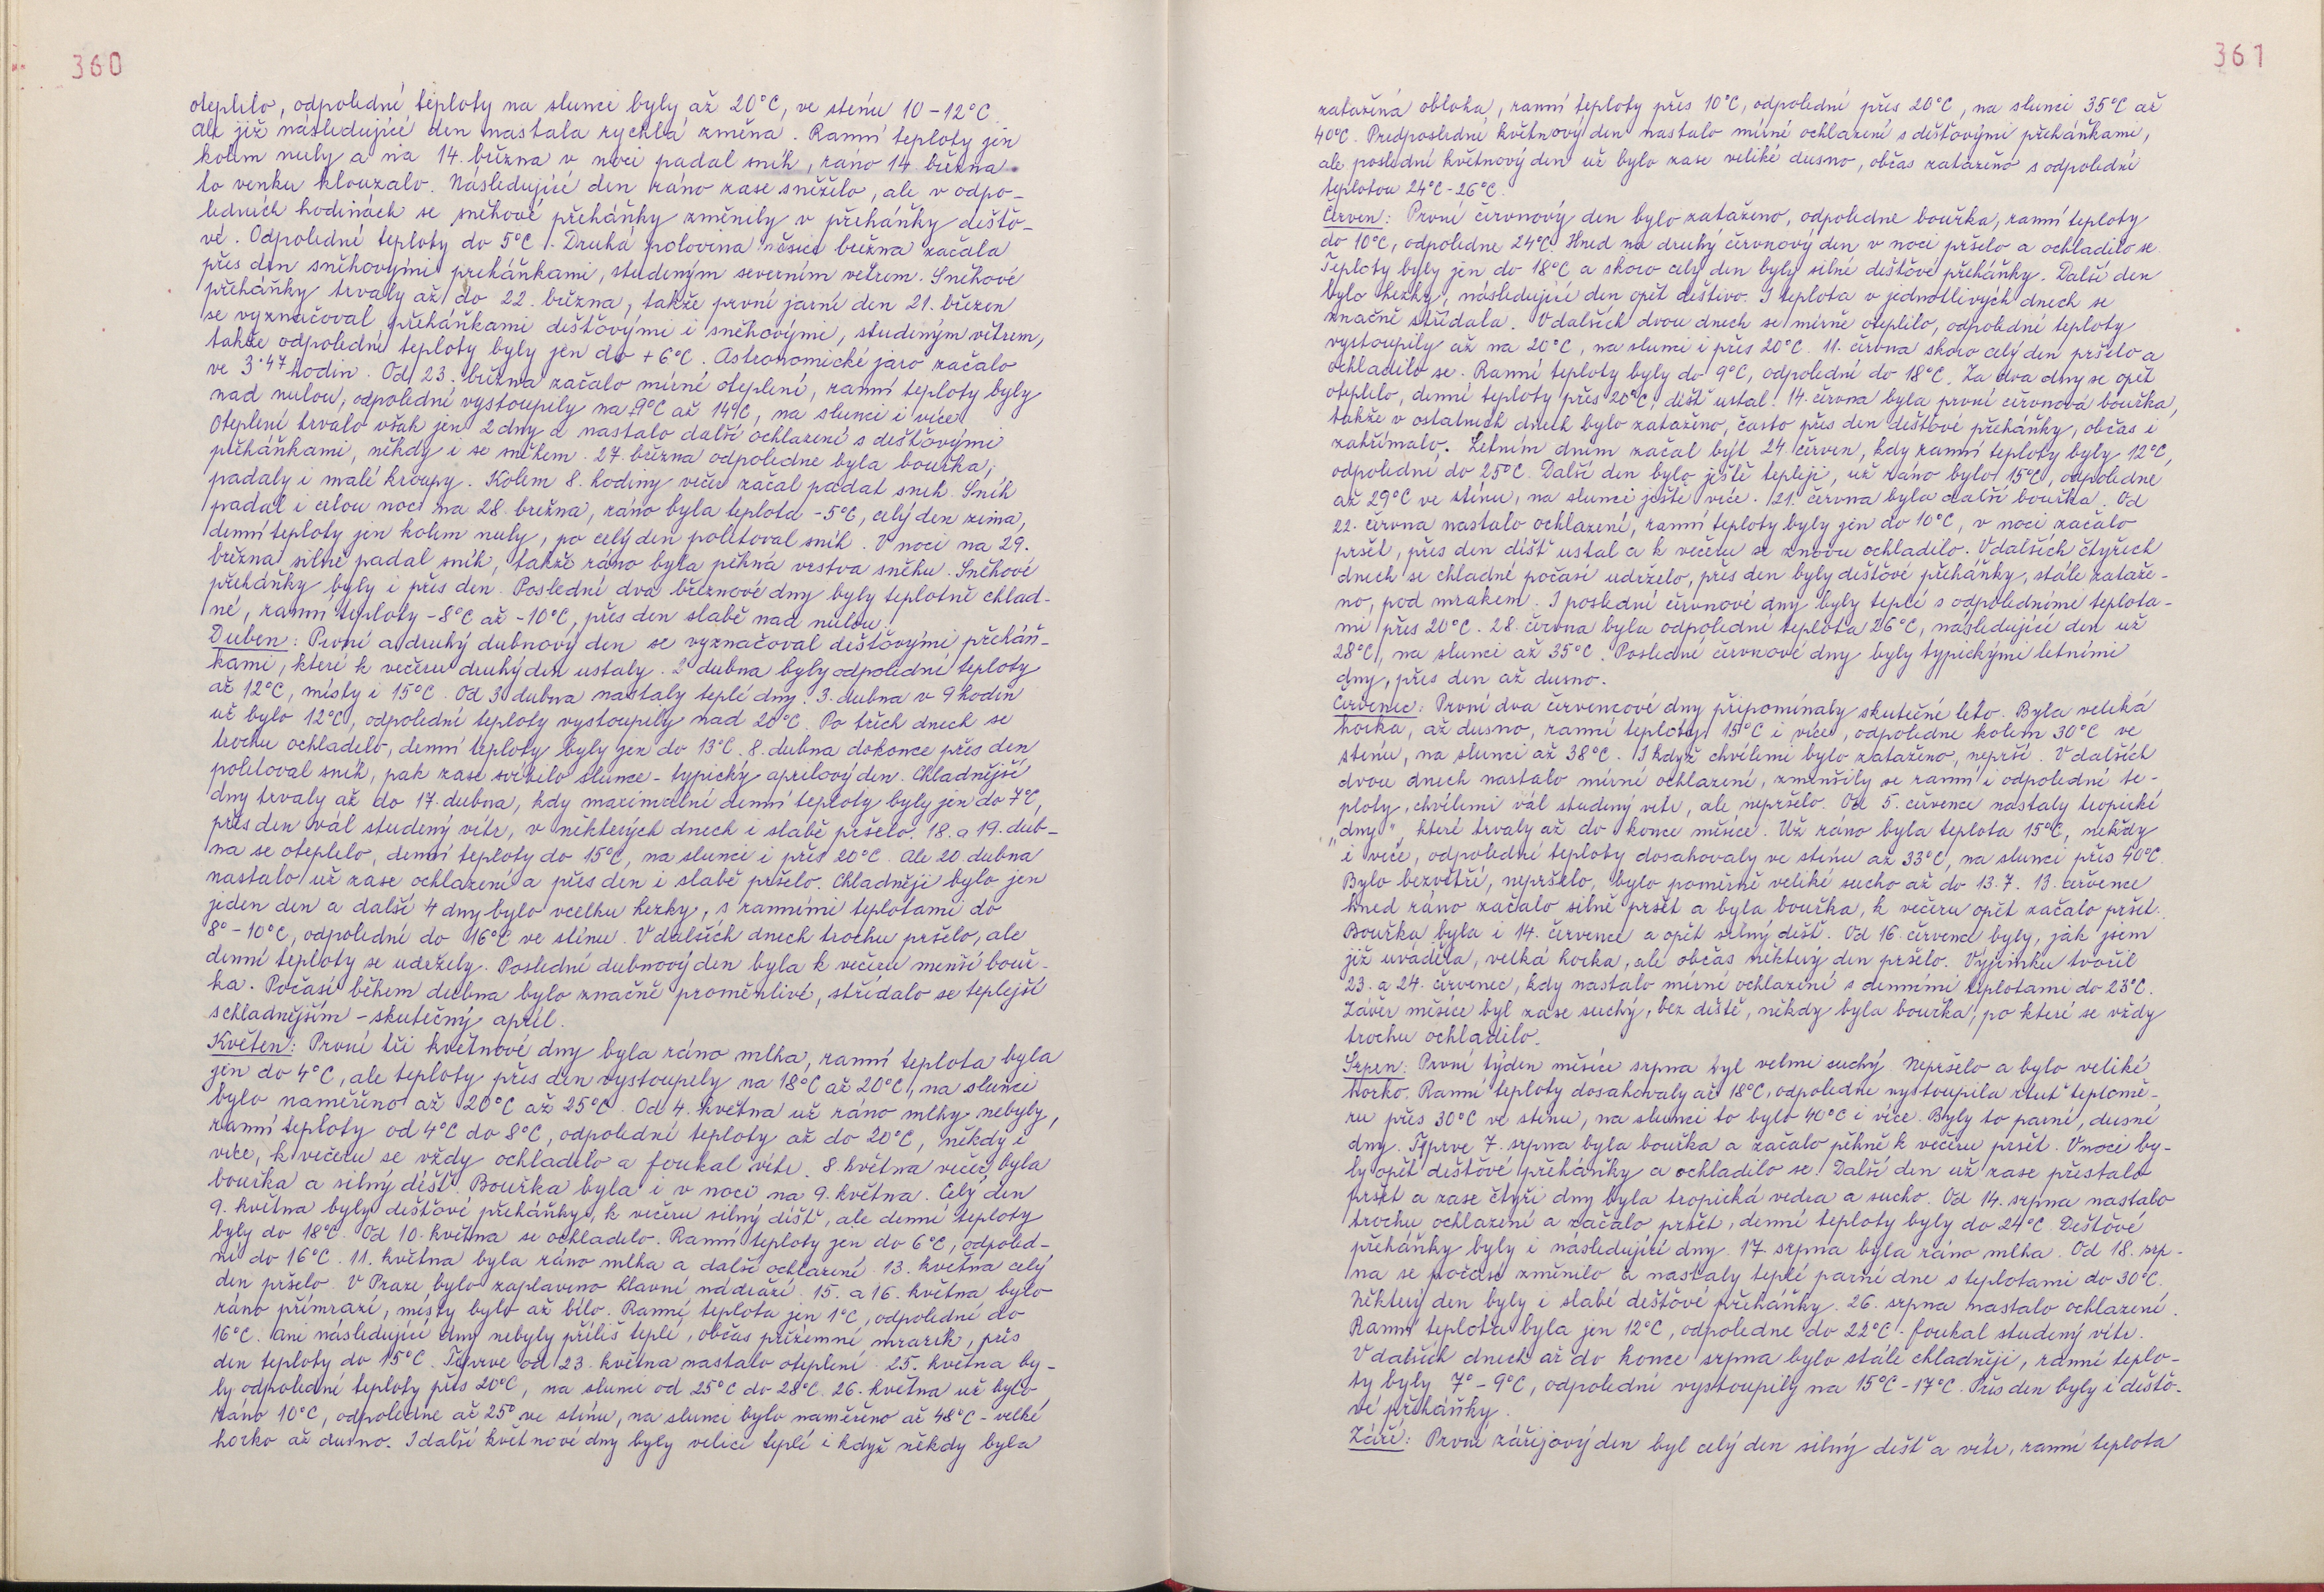 360
oteplilo, odpolední teploty na slunci byly až 20°C, ve stínu 10-12°C.
Ale již následující den nastala rychlá změna. Ranní teploty jen
kolem nuly a na 14. března v noci padal sníh, ráno 14 března
to venku klouzalo. Následující den ráno zase sněžilo, ale v odpo-
ledních hodinách se sněhové přeháňky změnily v přeháňky dešťo-
vé. Odpolední teploty do 5°C. Druhá polovina měsíce března začala
přes den sněhovými přeháňkami, studeným severním větrem. Sněhové
přeháňky trvaly až do 22. března, takže první jarní den 21. březen
se vyznačoval přeháňkami dešťovými i sněhovými, studeným větrem,
takže odpolední teploty byly jen do +6°C. Astronomické jaro začalo
ve 3.47 hodin. Od 23. března začalo mírné oteplení, ranní teploty byly
nad nulou, odpolední vystoupily na +9°C až 14°C, na slunci i více.
Oteplení trvalo však jen 2 dny a nastalo další ochlazení s dešťovými
přeháňkami, někdy i se sněhem. 27. března odpoledne byla bouřka,
padaly i malé kroupy. Kolem 8. hodiny večer začal padat sníh. Sníh
padal i celou noc na 28. března, ráno byla teplota -5°C, celý den zima,
denní teploty jen kolem nuly, po celý den poletoval sníh. V noci na 29.
března silně padal sníh, takže ráno byla pěkná vrstva sněhu. Sněhové
přeháňky byly i přes den. Poslední dva březnové dny byly teplotně chlad-
né, ranní teploty -8°C až -10°C, přes den slabě nad nulou.
Duben: První a druhý dubnový den se vyznačoval dešťovými přeháň-
kami, které k večeru druhý den ustaly. 2 dubna byly odpolední teploty
až 12°C, místy i 15°C. Od 3 dubna nastaly teplé dny. 3. dubna v 9 hodin
už bylo 12°C, odpolední teploty vystoupily nad 20°C. Po třech dnech se
trochu ochladilo, denní teploty byly jen do 13°C. 8. dubna dokonce přes den
poletoval sníh, pak zase svítilo slunce - typický aprílový den. Chladnější
dny trvaly až do 17. dubna, kdy maximální denní teploty byly jen do 7°C,
přes den vál studený vítr, v některých dnech i slabě pršelo. 18. a 19. dub-
na se oteplilo, denní teploty do 15°C, na slunci i přes 20°C. Ale 20. dubna
nastalo už zase ochlazení a přes den i slabě pršelo. Chladněji bylo jen
jeden den a další 4 dny bylo vcelku hezky, s ranními teplotami do
8°-10°C, odpolední do 16°C ve stínu. V dalších dnech trochu pršelo, ale
denní teploty se udržely. Poslední dubnový den byla k večeru menší bouř-
ka. Počasí během dubna bylo značně proměnlivé, střídalo se teplejší
schladnějším - skutečný apríl.
Květen: První tři květnové dny byla ráno mlha, ranní teplota byla
jen do 4°C, ale teploty přes den vystoupily na 18°C až 20°C, na slunci
bylo naměřeno až 20°C až 25°C. Od 4. května už ráno mlhy nebyly,
ranní teploty od 4°C do 8°C, odpolední teploty až do 20°C, někdy i
více, k večeru se vždy ochladilo a foukal vítr. 8. května večer byla
bouřka a silný déšť. Bouřka byla i v noci na 9. května. Celý den
9. května byly dešťové přeháňky, k večeru silný déšť, ale denní teploty
byly do 18°C. Od 10. května se ochladilo. Ranní teploty jen do 6°C, odpoled-
ní do 16°C. 11. května byla ráno mlha a další ochlazení. 13. května celý
den pršelo. V Praze bylo zaplaveno hlavní nádraží. 15. a 16. května bylo
ráno přímrazí, místy bylo až bílo. Ranní teplota jen 1°C, odpolední do
16°C. Ani následující dny nebyly příliš teplé, občas přízemní mrazík, přes
den teploty do 15°C. Teprve od 23. května nastalo oteplení. 25. května by-
ly odpolední teploty přes 20°C, na slunci od 25°C do 28°C. 26. května už bylo
ráno 10°C, odpoledne až 25° ve stínu, na slunci bylo naměřeno až 48°C - velké
horko až dusno. I další květnové dny byly velice teplé i když někdy byla
361
zatažená obloha, ranní teploty přes 10°C, odpolední přes 20°C, na slunci 35°C až
40°C. Předposlední květnový den nastalo mírné ochlazení s dešťovými přeháňkami,
ale poslední květnový den už bylo zase veliké dusno, občas zataženo s odpolední
teplotou 24°C-26°C.
Červen: První červnový den bylo zataženo, odpoledne bouřka, ranní teploty
do 10°C, odpoledne 24°C. Hned na druhý červnový den v noci pršelo a ochladilo se.
Teploty byly jen do 18°C a skoro celý den byly silné dešťové přeháňky. Další den
bylo hezky, následující den opět deštivo. I teplota v jednotlivých dnech se
značně střídala. V dalších dvou dnech se mírně oteplilo, odpolední teploty
vystoupily až na 20°C, na slunci i přes 20°C. 11. června skoro celý den pršelo a
ochladilo se. Ranní teploty byly do 9°C, odpolední do 18°C. Za dva dny se opět
oteplilo, denní teploty přes 20°C, déšť ustal. 14. června byla první červnová bouřka,
takže v ostatních dnech bylo zataženo, často přes den dešťové přeháňky, občas i
zahřímalo. Letním dnem začal být 24. červen, kdy ranní teploty byly 12°C,
odpolední do 25°C. Další den bylo ještě tepleji, už ráno bylo 15°C, odpoledne
až 29°C ve stínu, na slunci ještě více. 21. června byla další bouřka. Od
22. června nastalo ochlazení, ranní teploty byly jen do 10°C, v noci začalo
pršet, přes den déšť ustal a k večeru se znovu ochladilo. V dalších čtyřech
dnech se chladné počasí udrželo, přes den byly dešťové přeháňky, stále zataže-
no, pod mrakem. I poslední červnové dny byly teplé s odpoledními teplota-
mi přes 20°C. 28. června byla odpolední teplota 26°C, následující den už
28°C, na slunci až 35°C. Poslední červnové dny byly typickými letními
dny, přes den až dusno.
Červenec: První dva červencové dny připomínaly skutečné léto. Byla veliká
horka, až dusno, ranní teploty 15°C i více, odpoledne kolem 30°C ve
stínu, na slunci až 38°C. I když chvílemi bylo zataženo, neprší. V dalších
dvou dnech nastalo mírné ochlazení, zmenšily se ranní i odpolední te-
ploty, chvílemi vál studený vítr, ale nepršelo. Od 5. července nastaly tropické
„dny", které trvaly až do konce měsíce. Už ráno byla teplota 15°C, někdy
i více, odpolední teploty dosahovaly ve stínu až 33°C, na slunci přes 40°C.
Bylo bezvětří, nepršelo, bylo poměrně veliké sucho až do 13.7. 13. července
hned ráno začalo silně pršet a byla bouřka, k večeru opět začalo pršet.
Bouřka byla i 14. července a opět silný déšť. Od 16. července byly, jak jsem
již uváděla, velká horka, ale občas některý den pršelo. Vyjímku tvořil
23. a 24. červenec, kdy nastalo mírné ochlazení s denními teplotami do 23°C.
Závěr měsíce byl zase suchý, bez deště, někdy byla bouřka, po které se vždy
trochu ochladilo.
Srpen: První týden měsíce srpna byl velmi suchý. Nepršelo a bylo veliké
horko. Ranní teploty dosahovaly až 18°C, odpoledne vystoupila rtuť teplomě-
ru přes 30°C ve stínu, na slunci to bylo 40°C i více. Byly to parné, dusné
dny. Teprve 7. srpna byla bouřka a začalo pěkně k večeru pršet. V noci by-
ly opět dešťové přeháňky a ochladilo se. Další den už zase přestalo
pršet a zase čtyři dny byla tropická vedra a sucho. Od 14. srpna nastalo
trochu ochlazení a začalo pršet, denní teploty byly do 24°C. Dešťové
přeháňky byly i následující dny. 17. srpna byla ráno mlha. Od 18. srp-
na se počasí změnilo a nastaly teplé parné dne s teplotami do 30°C.
Některý den byly i slabé dešťové přeháňky. 26. srpna nastalo ochlazení.
Ranní teplota byla jen 12°C, odpoledne do 22°C. foukal studený vítr.
V dalších dnech až do konce srpna bylo stále chladněji, ranní teplo-
ty byly 7°-9°C, odpolední vystoupily na 15°C-17°C. Přes den byly i dešťo-
vé přeháňky.
Září: První zářijový den byl celý den silný déšť a vítr, ranní teplota